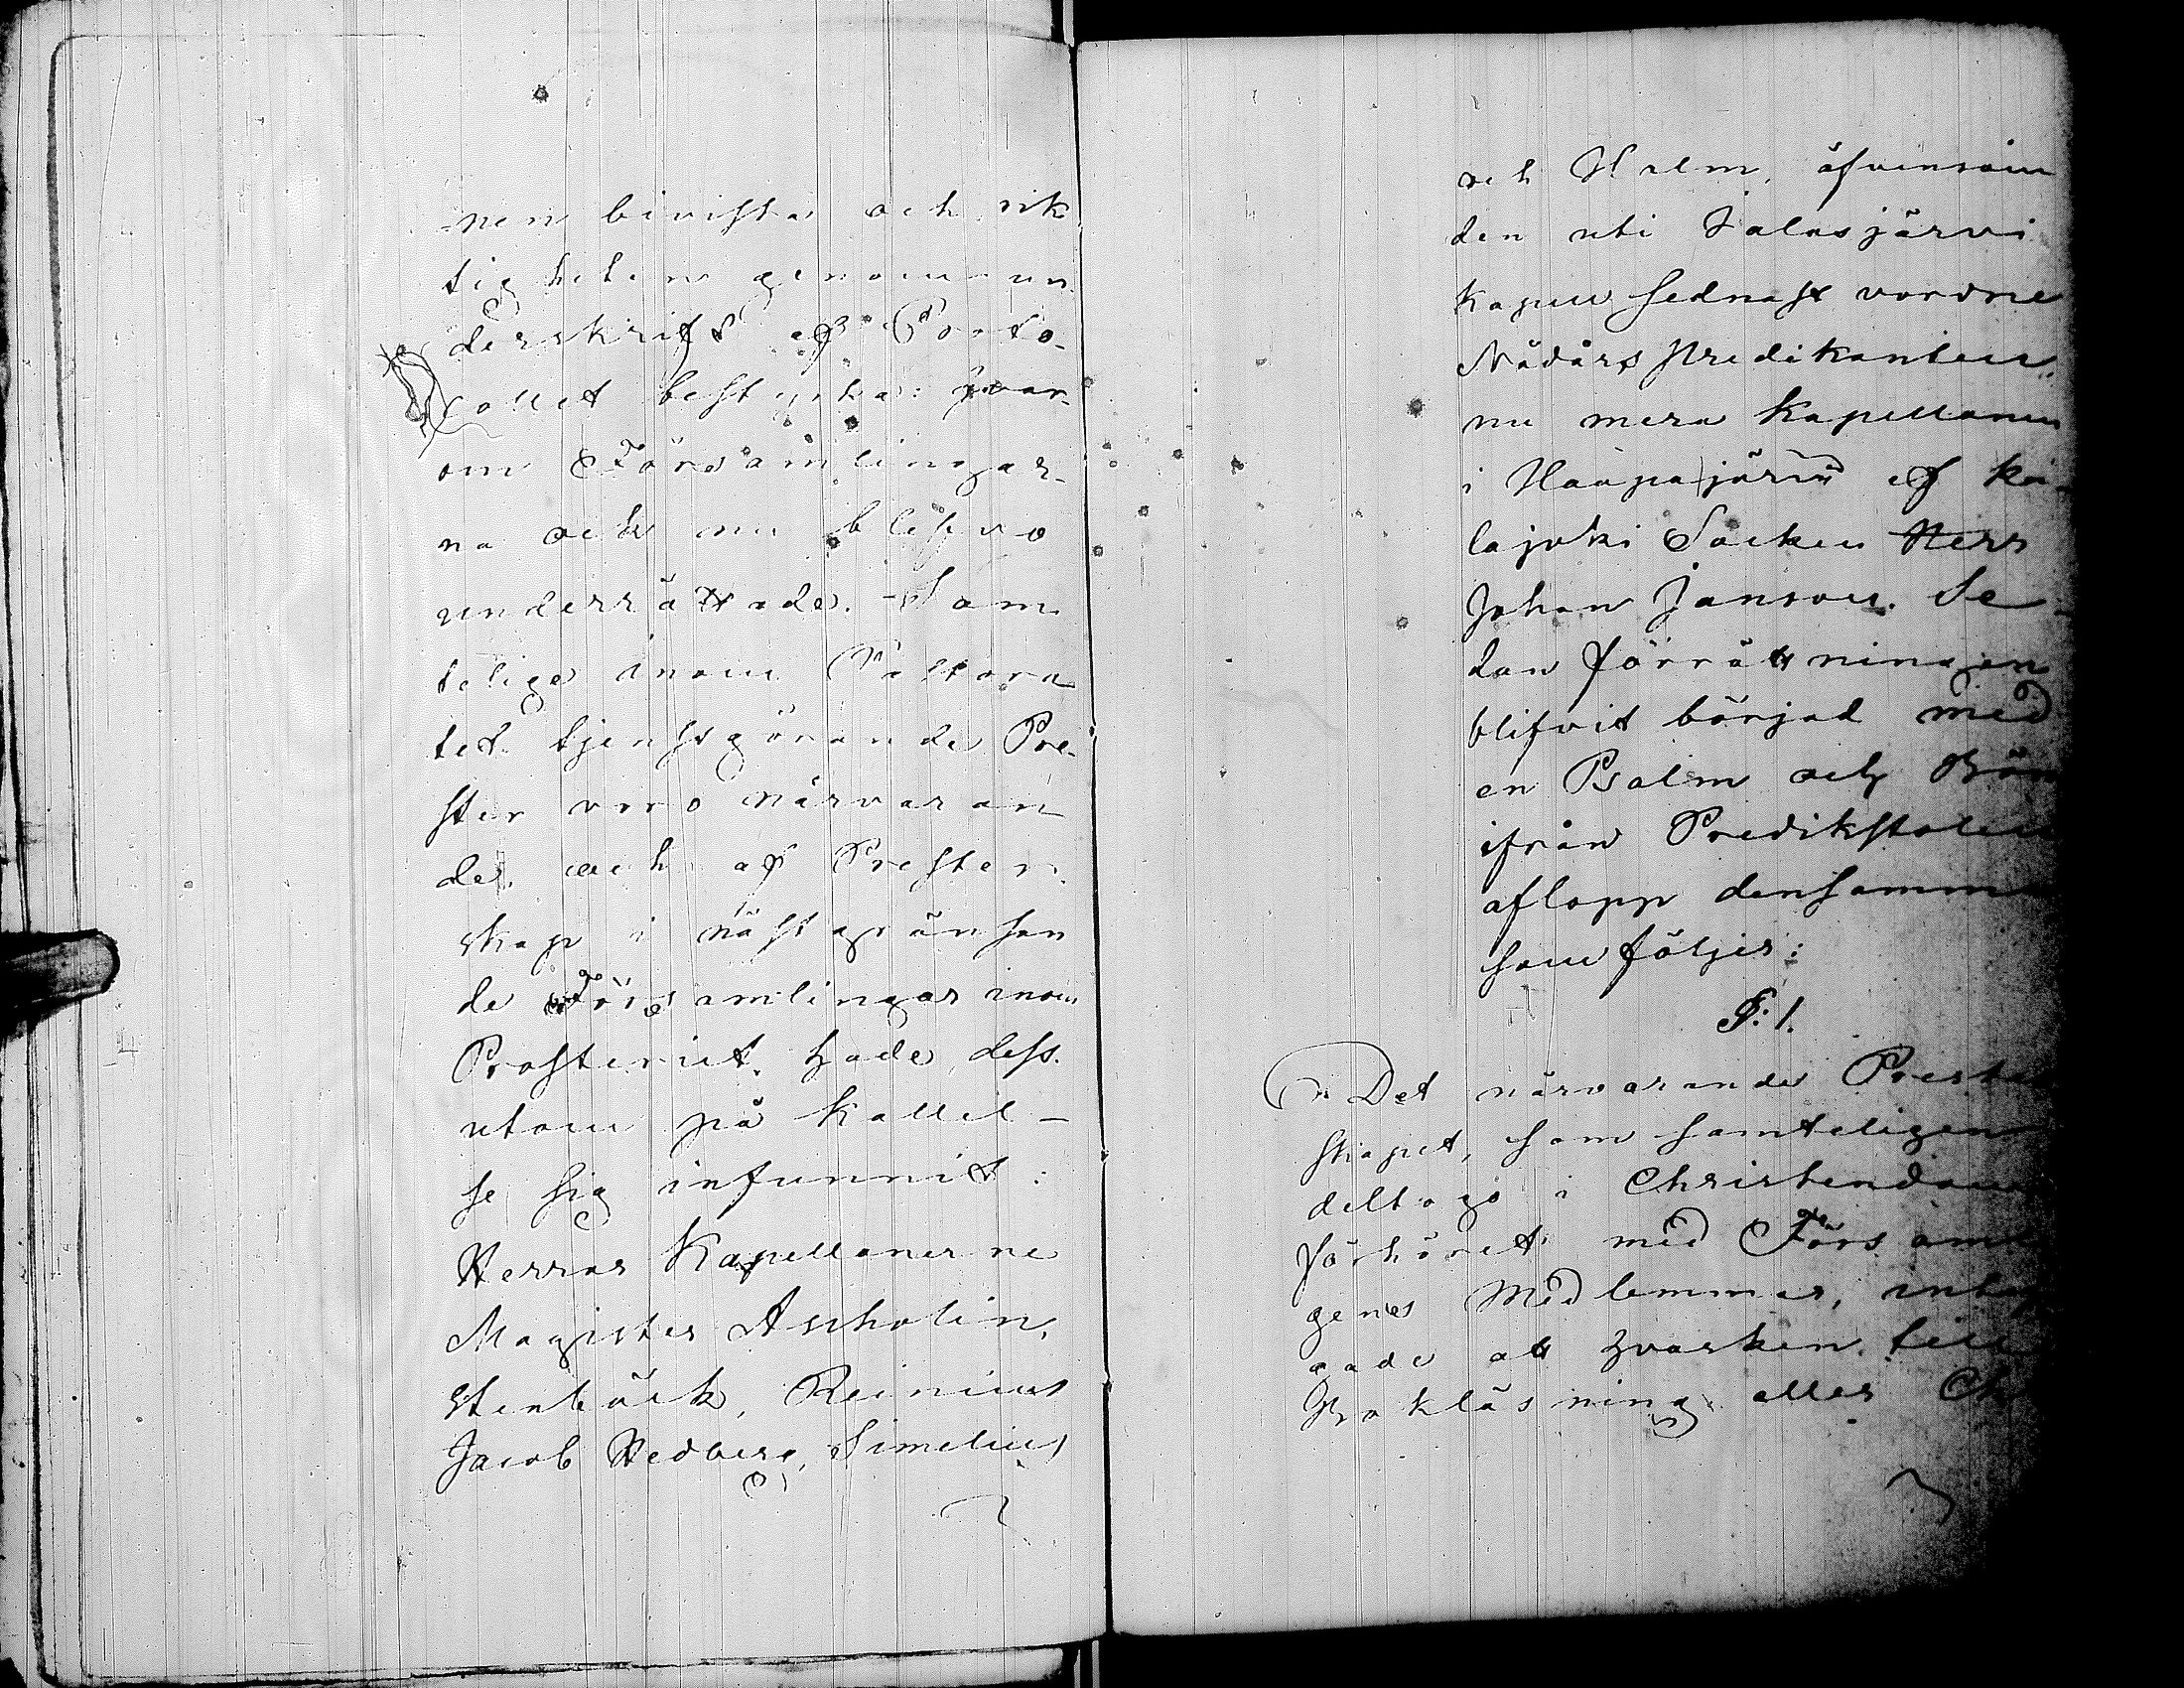 -nen bevista och rik
tigheten genom un
derskrift af Proto-
collet bestyrka: hvar-
om Församlingar-
na och nu blefvo
underrättade. - Sam
telige inom Pastora
tet tjenstgörande Pre-
ster voro närvaran
de, och af Prester-
skap i näst gränsan
de Församlingar inom
Prosteriet hade dess-
utom på kallel-
se sig infunnit:
Herrar Kapellanerne
Magister Ascholin,
Stenbäck, Reinius
Jacob Hedberg, Simelius
och Holm, äfvensom
den uti Jalasjärvi
Kapell sednast vordne
Nådårs Predikanten,
nu mera Kapellanen
i Haapajärvi af Ka-
lajoki Socken Herr
Johan Janson. Se-
dan förrättningen
blifvit börjad med
en Psalm och Bön
ifrån Predikstolen
aflopp densamma
som följer:
§: 1.
Det närvarande Prester
skapet, som samteligen
deltogo i Christendoms
förhöret med Församl
genes Medlemmar, intyg
gade att hvarken till
Bokläsning eller Ch